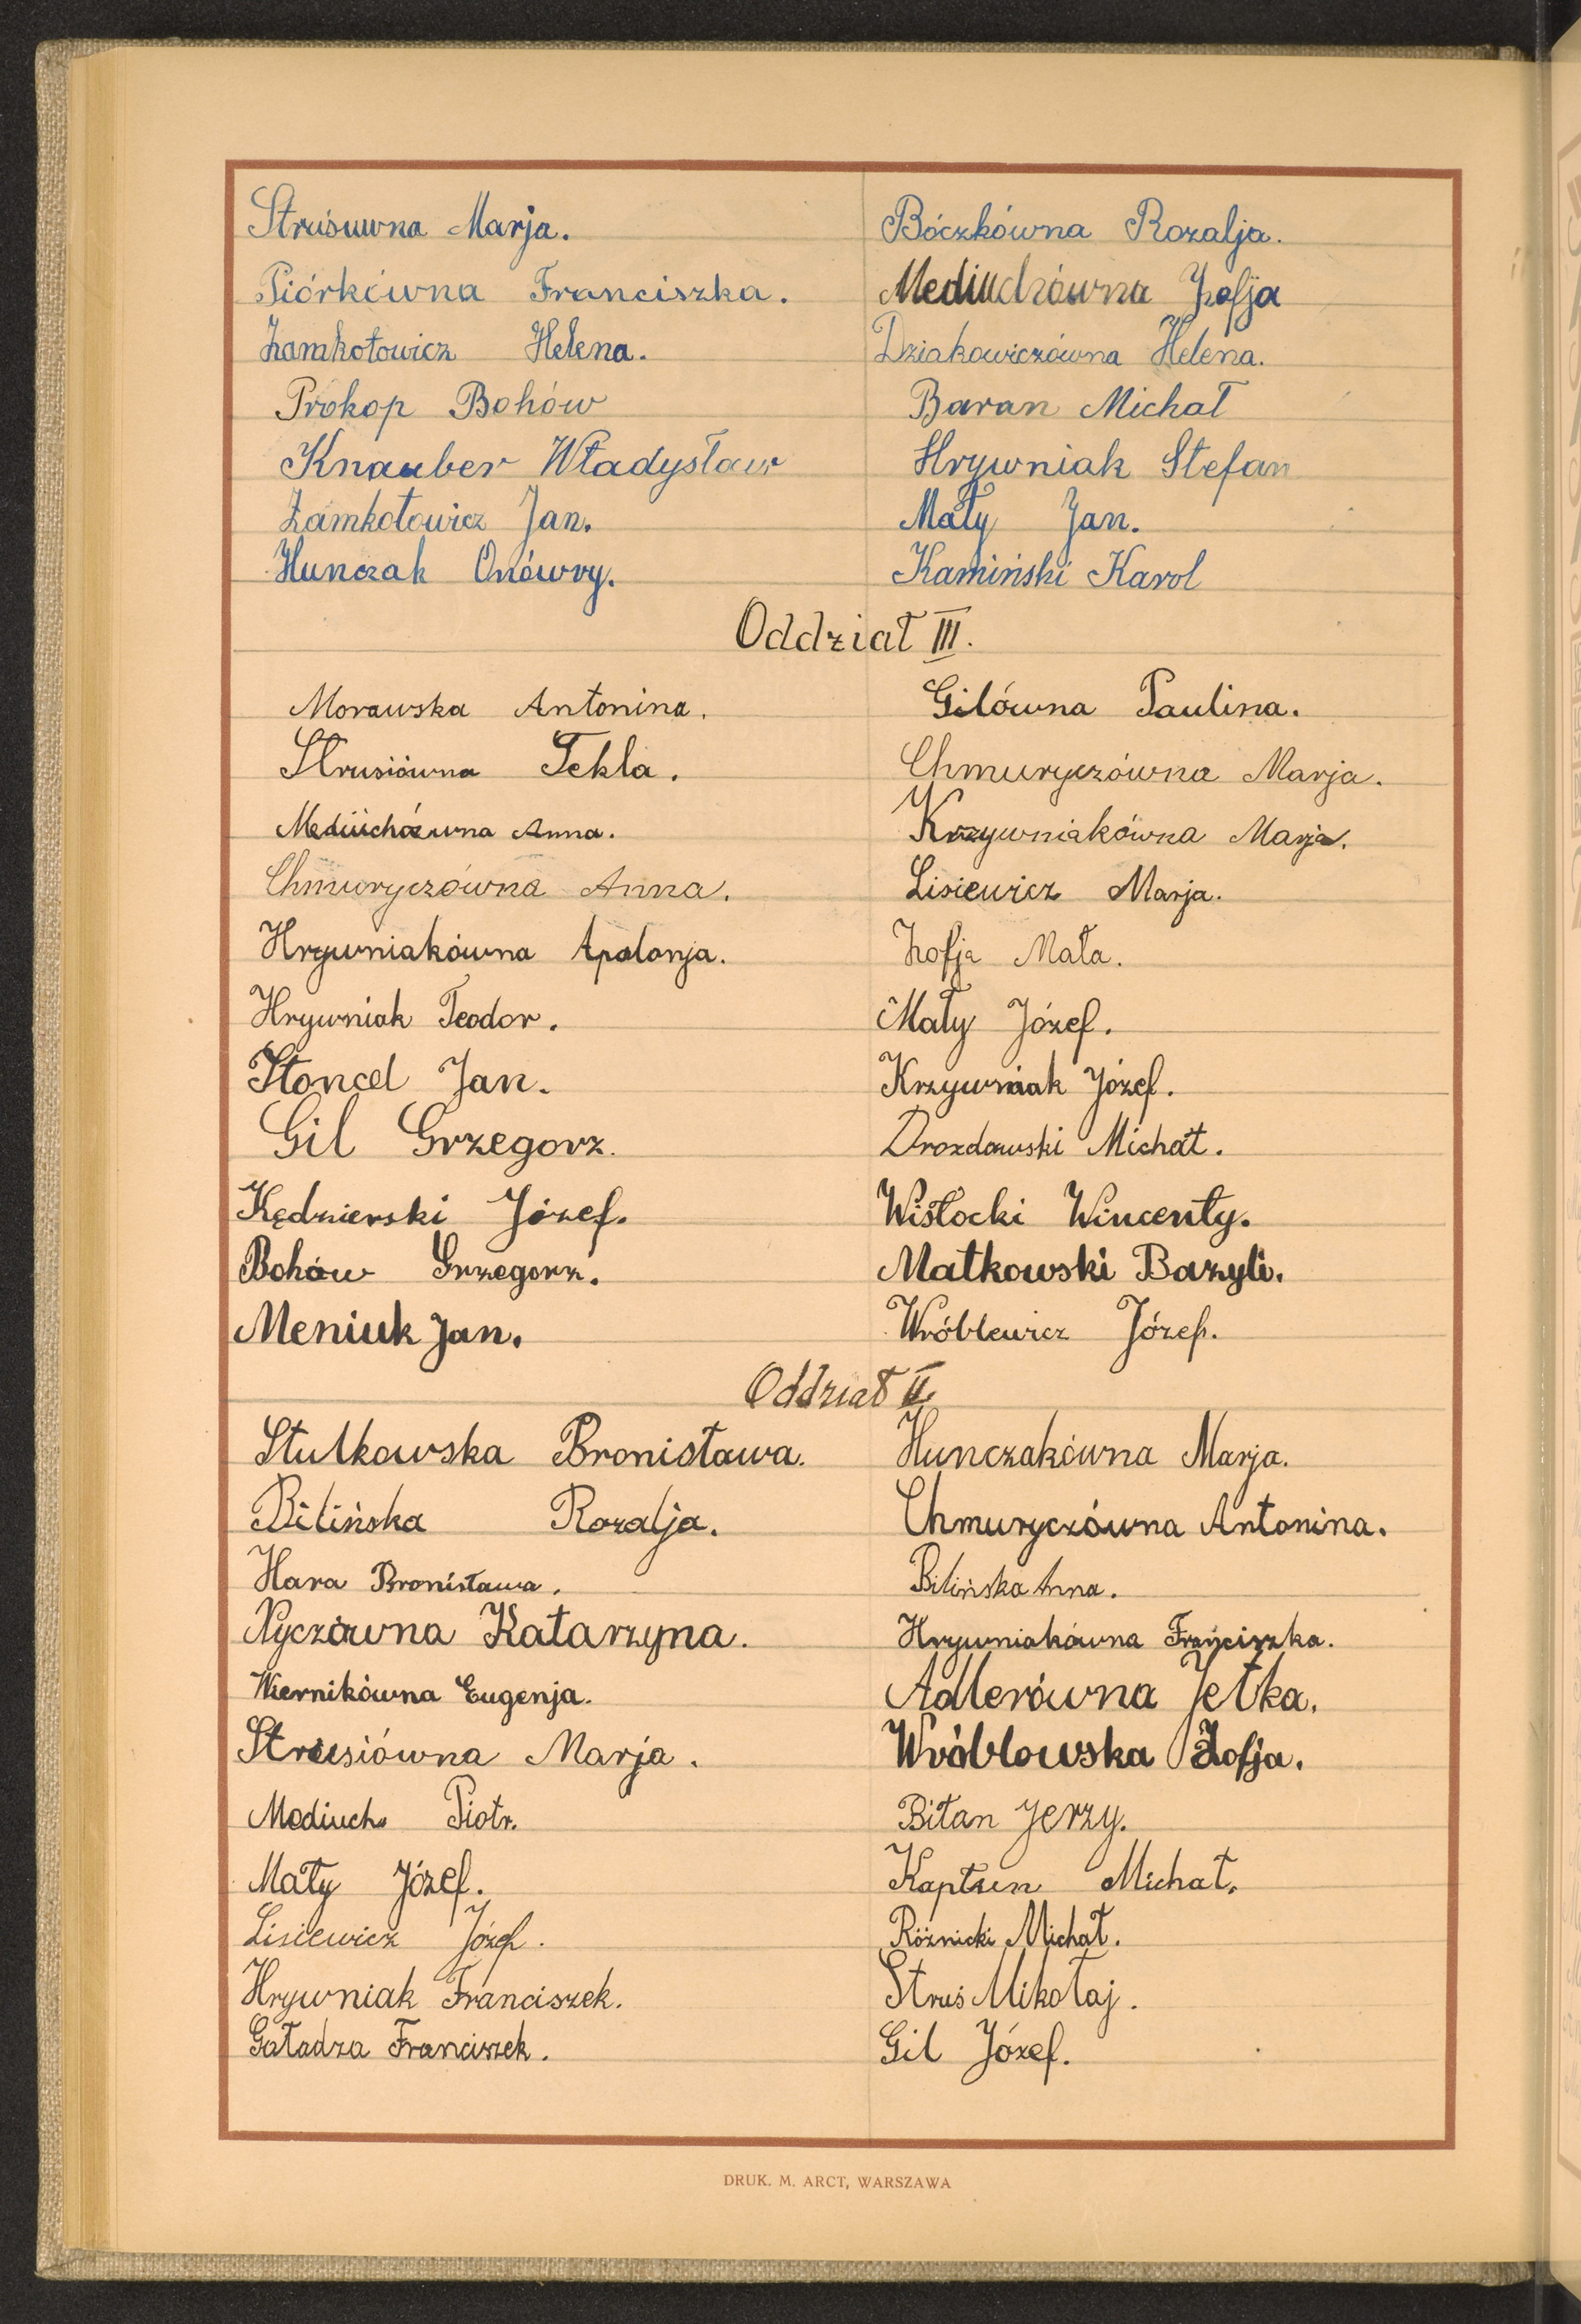 Strusiwna Marja.
Piórkówna Franciszka.
Zamkotowicz Helena.
Prokop Bohów
Knauber Władysław
Zamkotowicz Jan.
Hunczak Onówry.
Bóczkówna Rozalja.
Mediuchówna Zofja
Dziakowiczówna Helena.
Baran Michał
Hrywniak Stefan
Mały Jan.
Kamiński Karol
Oddział III.
Morawska Antonina.
Strusiówna Tekla.
Mediuchówna Anna.
Chmuryczówna Anna.
Hrywniakówna Apolonja.
Hrywniak Teodor.
Stoncel Jan.
Gil Grzegorz.
Kędzierski Józef.
Bohów Grzegorz.
Meniuk Jan.
Gilówna Paulina.
Chmuryczówna Marja.
Krzywniakówna Marja.
Lisiewicz Marja.
Zofja Mała.
Mały Józef.
Krzywniak Józef.
Drozdowski Michał.
Wisłocki Wincenty.
Matkowski Bazyli.
Wróblewicz Józef.
Oddział II.
Stutkowska Bronisława.
Bilińska Rozalja.
Hara Bronisława.
Nyczówna Katarzyna.
Wiernikówna Eugenja.
Strusiówna Marja.
Mediuch Piotr.
Mały Józef.
Lisiewicz Józef.
Hrywniak Franciszek.
Gaładza Franciszek.
Hunczakówna Marja.
Chmuryczówna Antonina.
Bilińska Anna.
Hrywniakówna Franciszka.
Adlerówna Jetka.
Wróblowska Zofja.
Bitan Jerzy.
Kaptun Michał.
Różnicki Michał.
Struś Mikołaj.
Gil Józef.
DRUK. M. ARCT, WARSZAWA